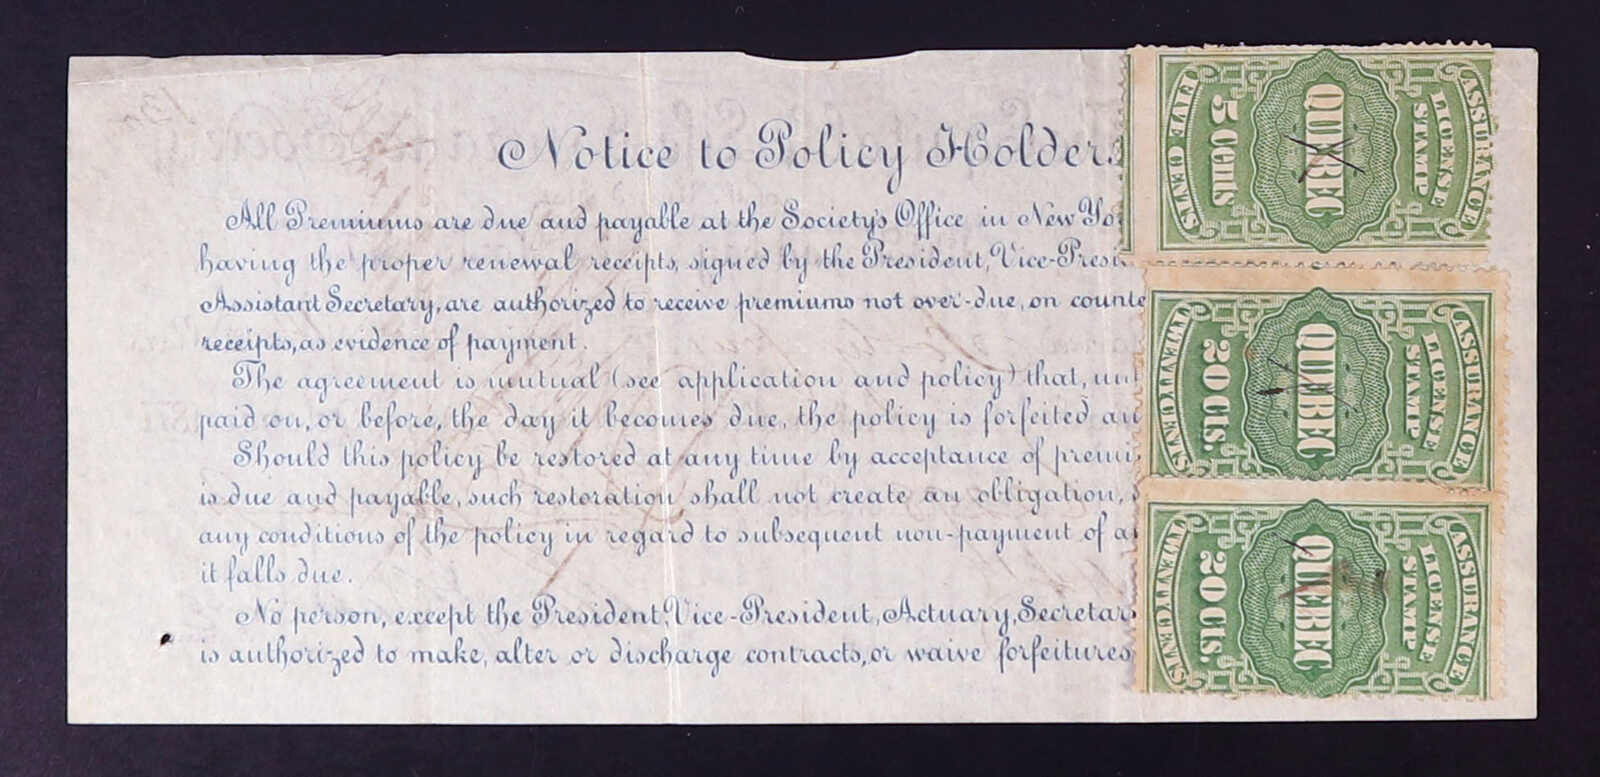 Notice to Policy Holders
All Premiums are due and payable at the Society's Office in New Yo
having the proper renewal receipts, signed by the President, Vice-Presi
Assistant Secretary, are authorized to receive premiums not over-due, on counte
receipts, as evidence of payment.
The agreement is mutual (see application and policy) that, un
paid on, or before, the day it becomes due, the policy is forfeited an
Should this policy be restored at any time by acceptance of premi
is due and payable, such restoration shall not create an obligation,
any conditions of the policy in regard to subsequent non-payment of a
it falls due.
No person, except the President, Vice-President, Actuary, Secretar
is authorized to make, alter or discharge contracts, or waive forfeitures
ASSURANCE
LICENSE
STAMP
QUEBEC
5 Cents
FIVE CENTS
ASSURANCE
LICENSE
STAMP
QUEBEC
30 Cts.
ASSURANCE
LICENSE
STAMP
QUEBEC
20 Cts.